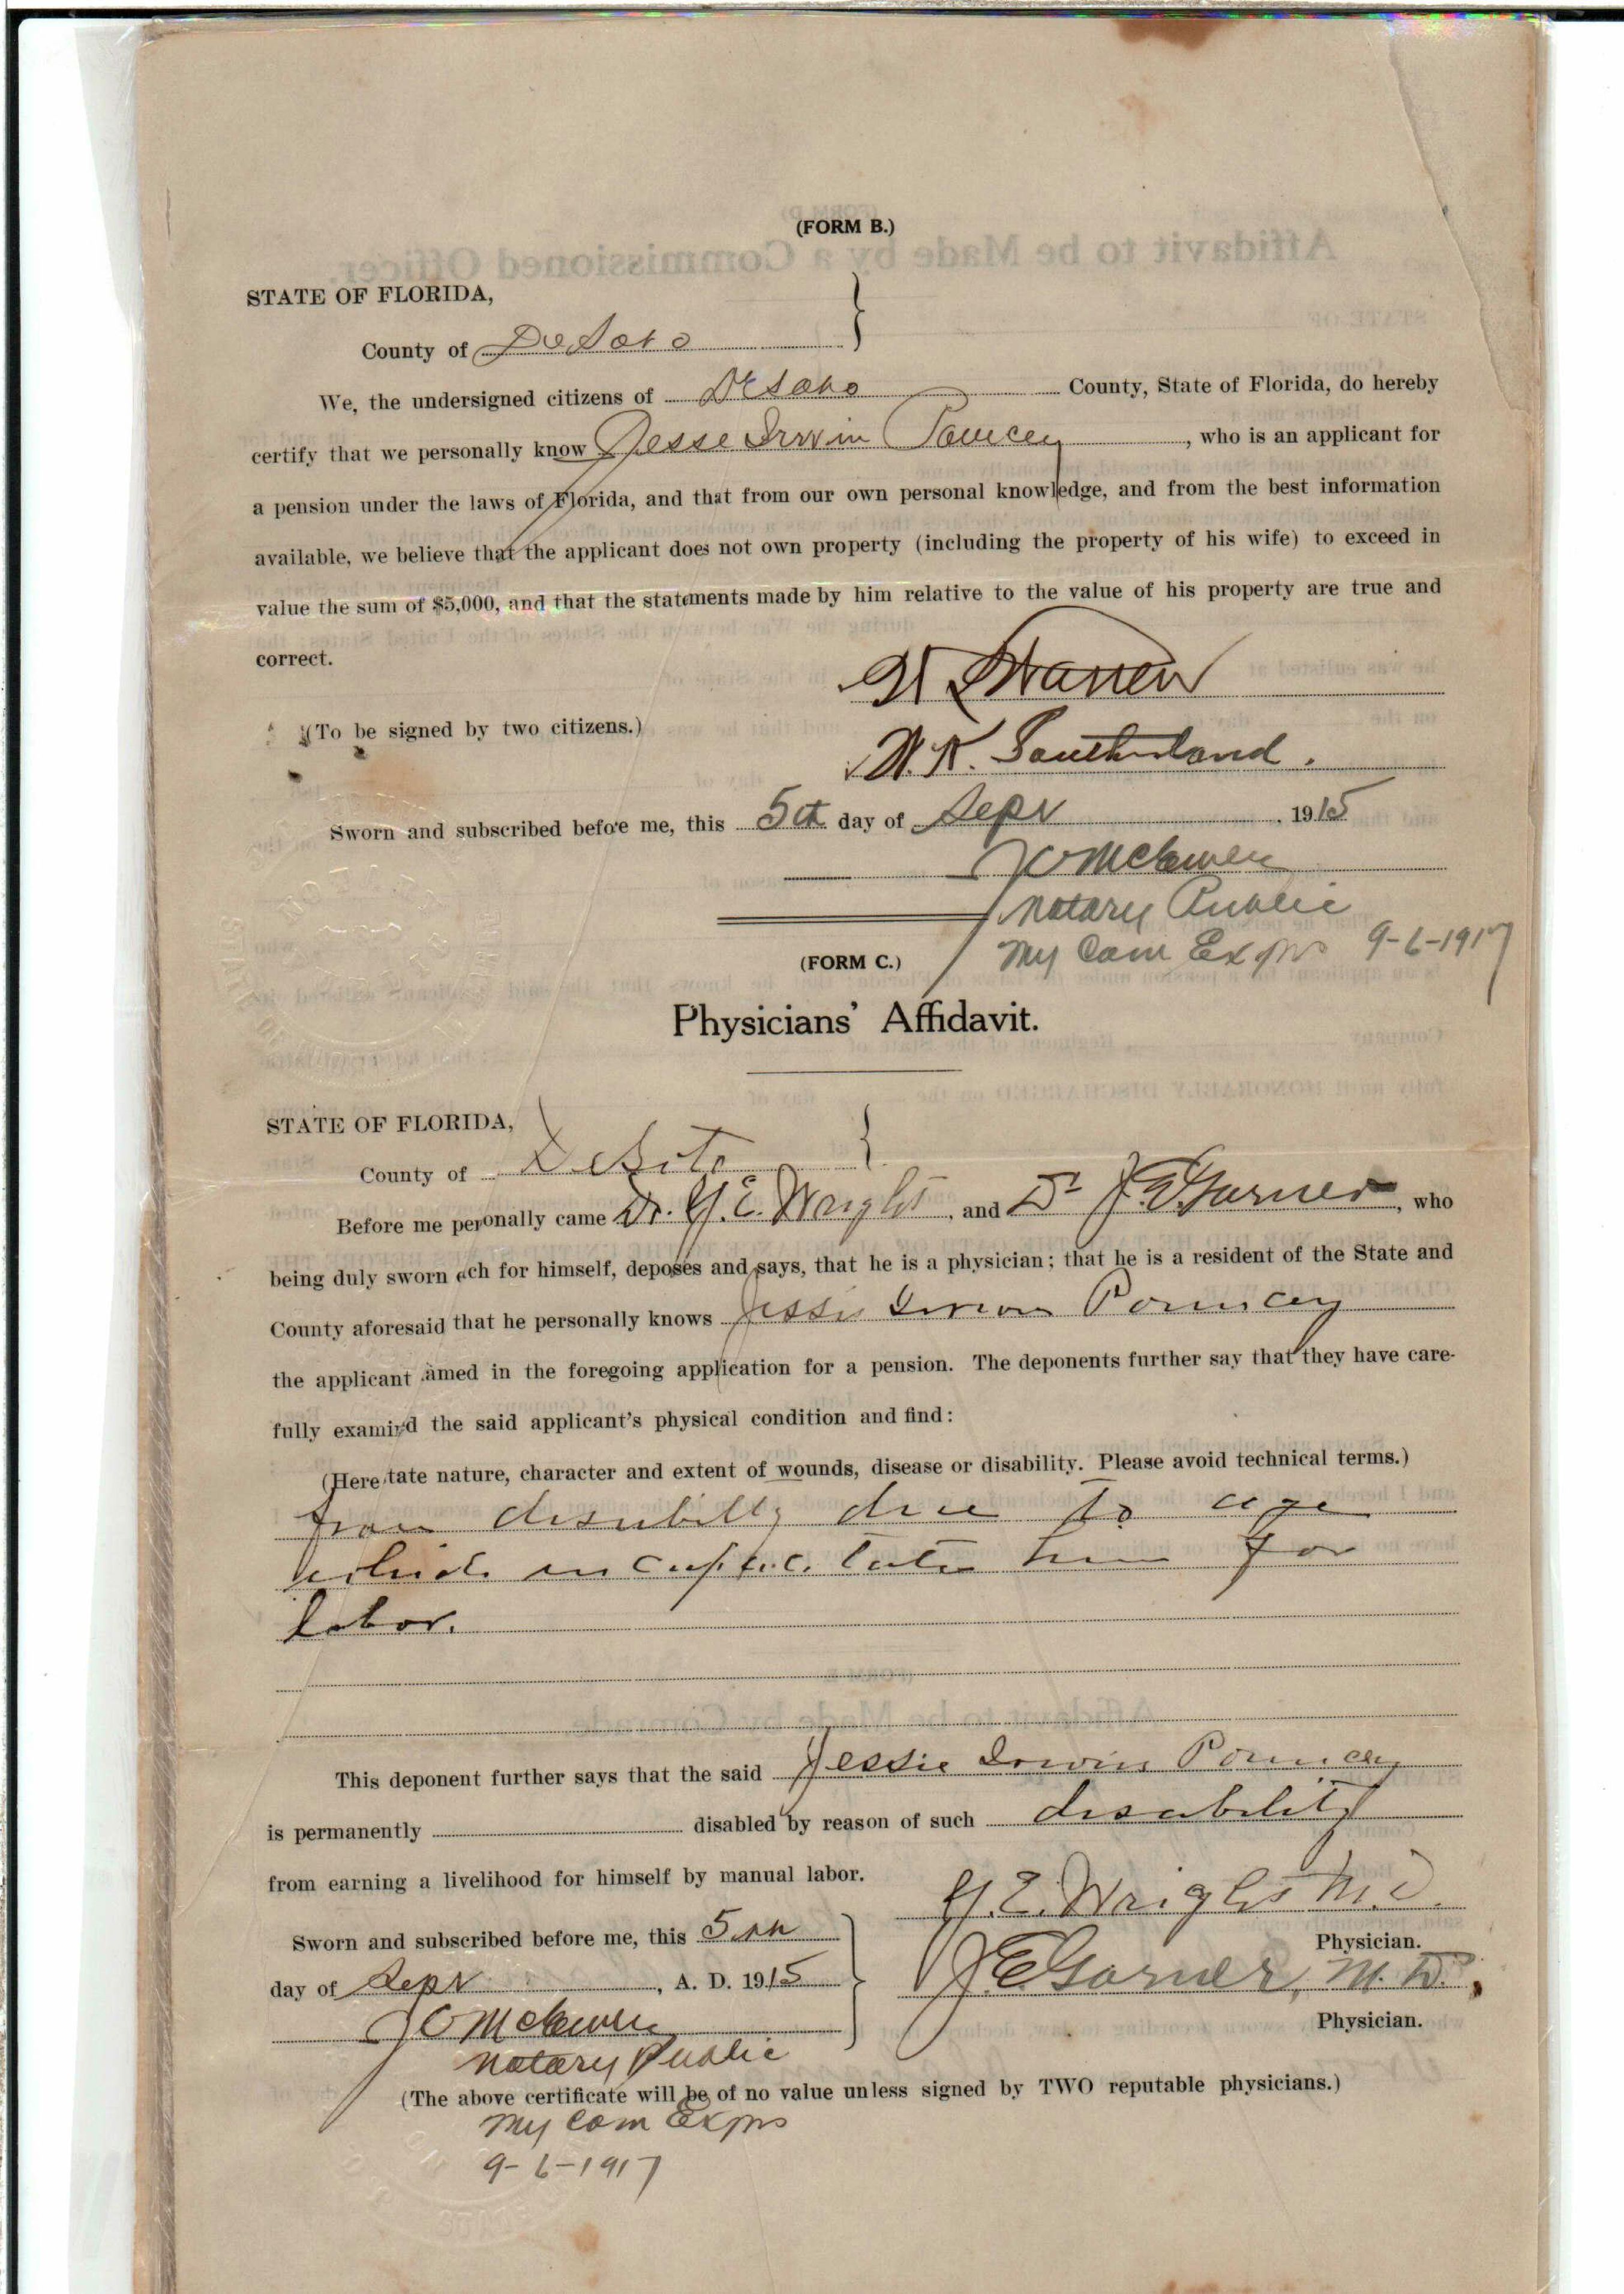 (FORM B.)
STATE OF FLORIDA,
County of DeSoto
We, the undersigned citizens of DeSoto County, State of Florida, do hereby
certify that we personally know Jesse Irwin Pouncey, who is an applicant for
a pension under the laws of Florida, and that from our own personal knowledge, and from the best information
available, we believe that the applicant does not own property (including the property of his wife) to exceed in
value the sum of $5,000, and that the statements made by him relative to the value of his property are true and
correct.
Warren
(To be signed by two citizens.)
W. K. Southerland.
Sworn and subscribed before me, this 5th day of Sept, 1915
J O McEwen
Notary Public
My Com Exprs 9-6-1917
(FORM C.)
Physicians' Affidavit.
STATE OF FLORIDA,
County of DeSoto
Before me personally came Dr. Y. E. Wright, and Dr J. E. Garner, who
being duly sworn each for himself, deposes and says, that he is a physician; that he is a resident of the State and
County aforesaid that he personally knows Jessie Irwin Pouncey
the applicant amed in the foregoing application for a pension. The deponents further say that they have care-
fully examin'd the said applicant's physical condition and find:
(Here tate nature, character and extent of wounds, disease or disability. Please avoid technical terms.)
from disability due to age
which incapacitates him for
labor.
This deponent further says that the said Jessie Irwin Pouncey
is permanently disabled by reason of such disability
from earning a livelihood for himself by manual labor.
Y. E. Wright M.D.
Physician.
Sworn and subscribed before me, this 5th
day of Sept, A. D. 1915
J. E. Garner, M. D.,
Physician.
J O McEwen
Notary Public
(The above certificate will be of no value unless signed by TWO reputable physicians.)
My Com Exprs
9-6-1917